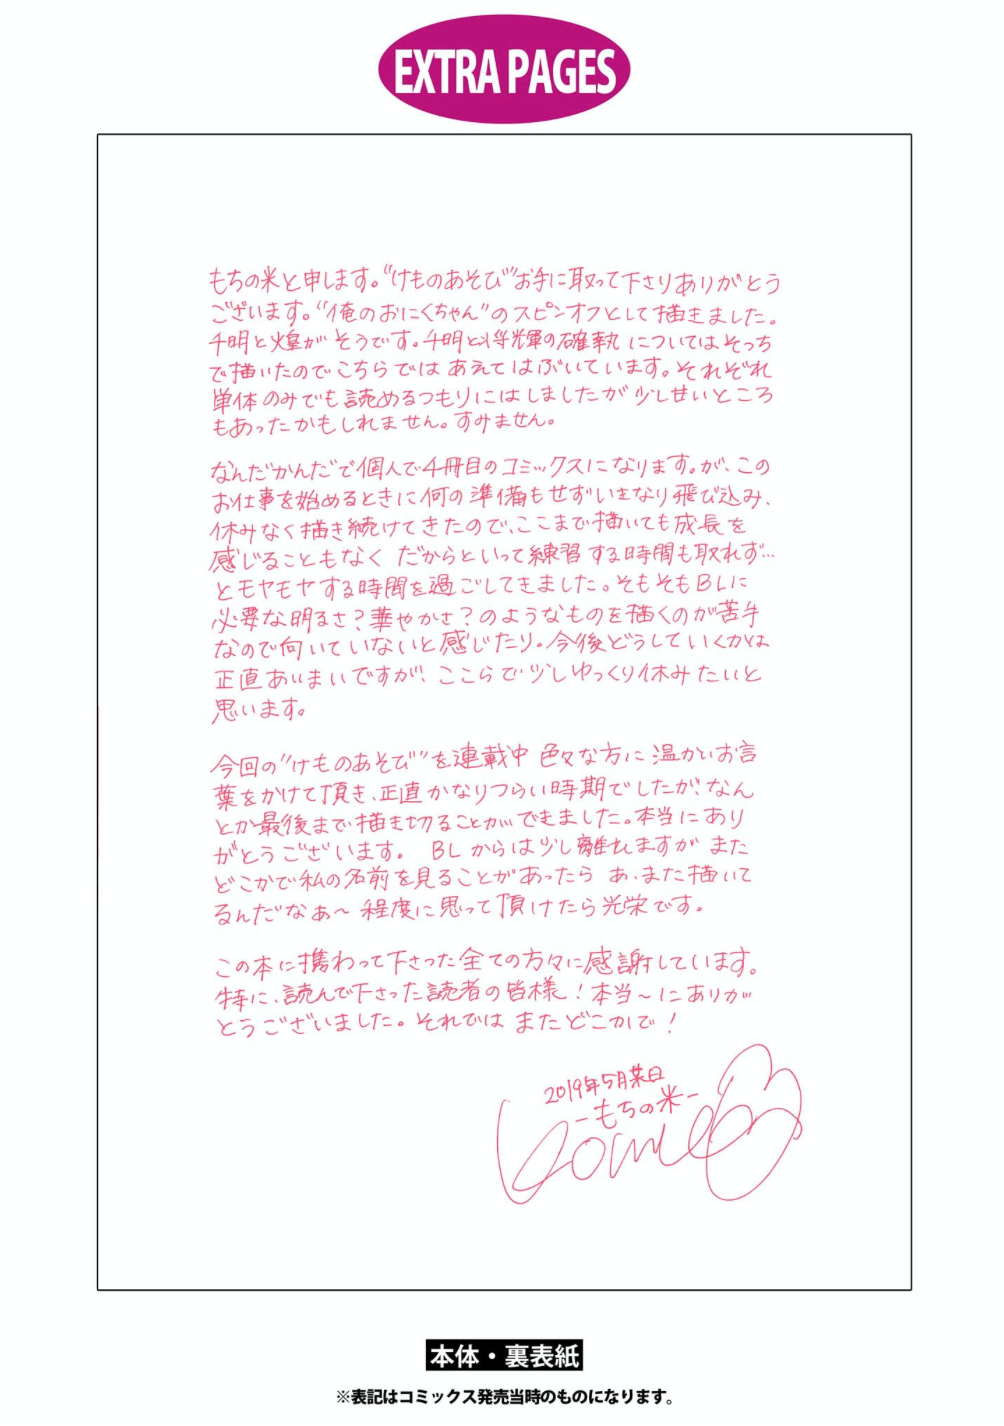 EXTRA PAGES
もちの米と申します。“けものあそび”お手に取って下さりありがとう
ございます。“俺のおにくちゃん”のスピンオフとして描きました。
千明と煌がそうです。千明と将輝の確執についてはそっち
で描いたのでこちらではあえてはぶいています。それぞれ
単体のみでも読めるつもりにはしましたが少し甘いところ
もあったかもしれません。すみません。
なんだかんだで個人で4冊目のコミックスになります。が、この
お仕事を始めるときに何の準備もせずいきなり飛び込み、
休みなく描き続けてきたので、ここまで描いても成長を
感じることもなく だからといって練習する時間も取れず…
とモヤモヤする時間を過ごしてきました。そもそもBLに
必要な明るさ?華やかさ?のようなものを描くのが苦手
なので向いていないと感じたり。今後どうしていくかは
正直あいまいですが、ここらで少しゆっくり休みたいと
思います。
今回の“けものあそび”を連載中 色々な方に温かいお言
葉をかけて頂き、正直かなりつらい時期でしたが、なん
とか最後まで描き切ることができました。本当にあり
がとうございます。 BLからは少し離れますが また
どこかで私の名前を見ることがあったら あ、また描いて
るんだなぁ〜程度に思って頂けたら光栄です。
この本に携わって下さった全ての方々に感謝しています。
特に、読んで下さった読者の皆様!本当〜にありが
とうございました。それでは またどこかで!
2019年5月某日
-もちの米-
Kome
本体・裏表紙
※表記はコミックス発売当時のものになります。